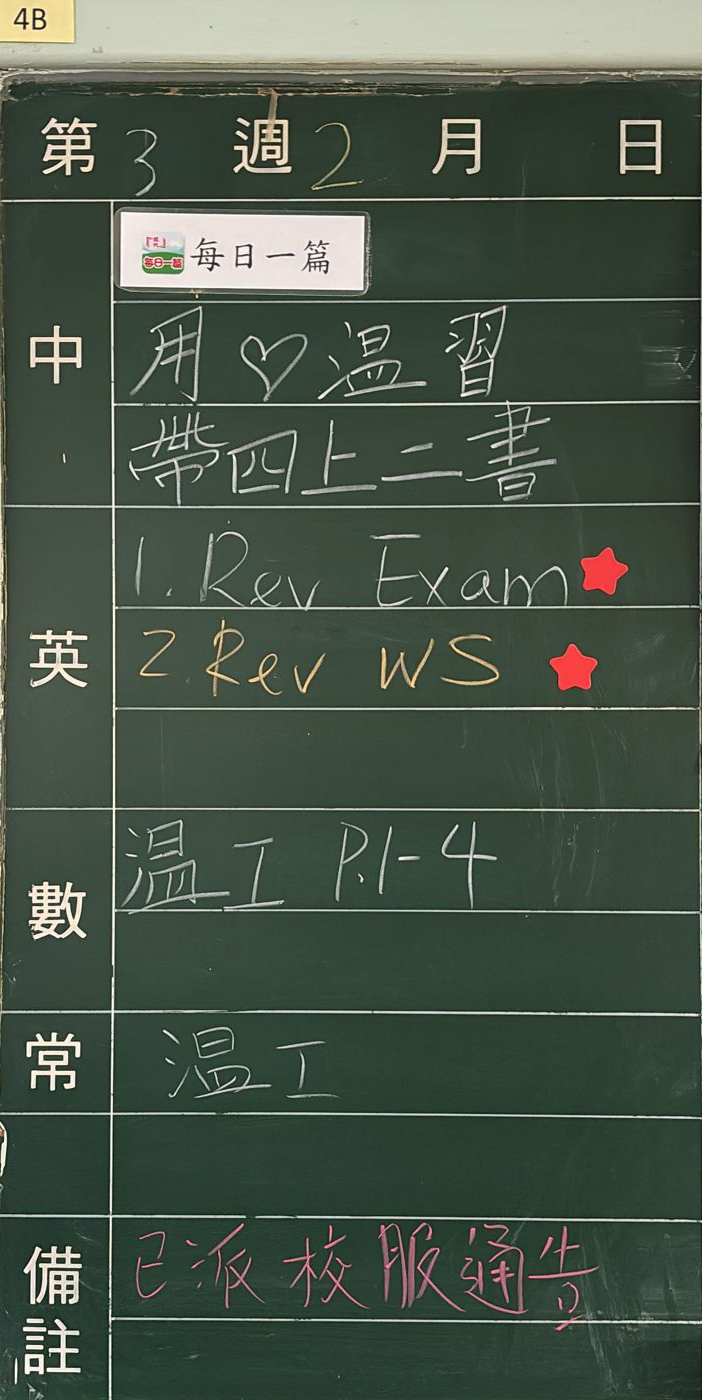 4B
第3週2月日
中
每日一篇 每日一篇
用♡温習
帶四上二書
英
1. Rev Exam
2 Rev WS
數
温工 P.1-4
常
温工
備註
已派校服通告